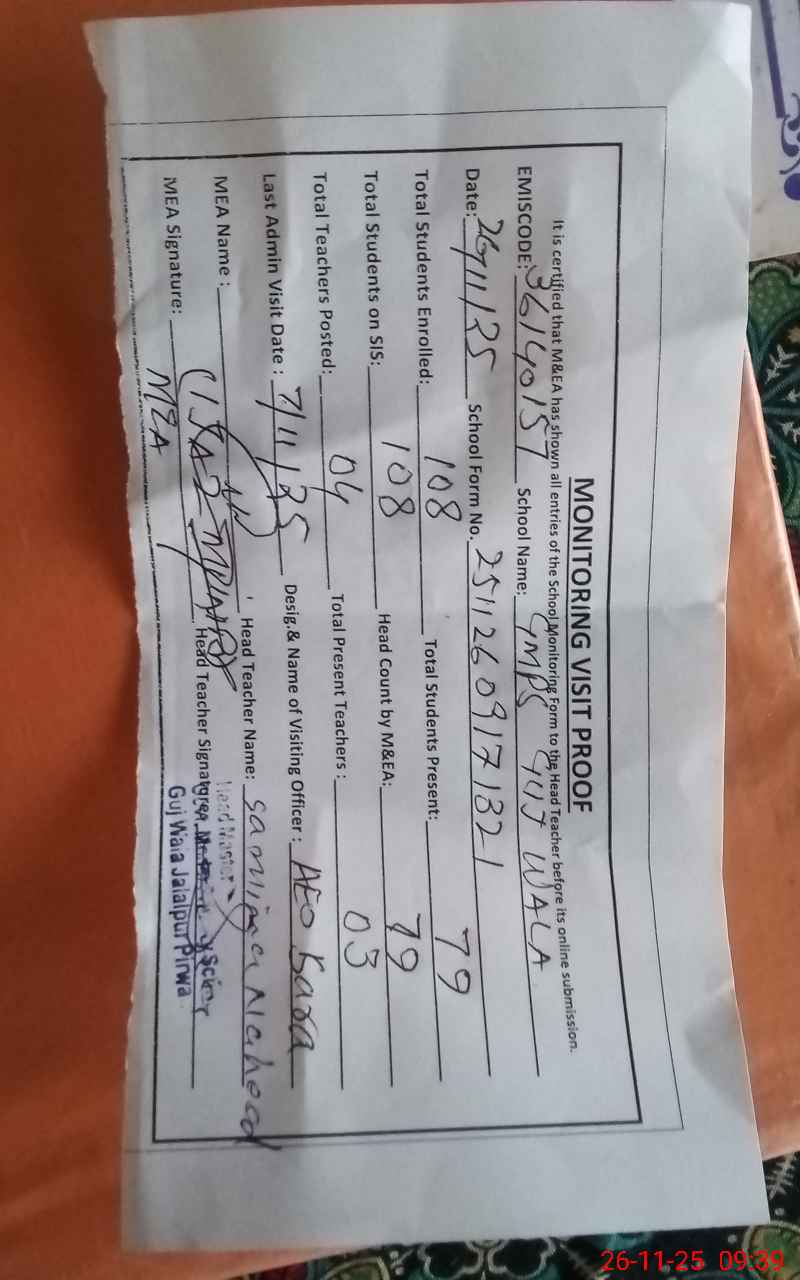 MONITORING VISIT PROOF
It is certified that M&EA has shown all entries of the School Monitoring Form to the Head Teacher before its online submission.
EMISCODE: 36140157 School Name: GMPS GUJ WALA
Date: 26/11/25 School Form No. 25112609171321
Total Students Enrolled: 108 Total Students Present: 79
Total Students on SIS: 108 Head Count by M&EA: 79
Total Teachers Posted: 04 Total Present Teachers : 03
Last Admin Visit Date : 7/11/25 Desig.& Name of Visiting Officer : AEO
MEA Name : Head Teacher Name:
MEA Signature: MEA Head Teacher Signature
Head Master
Guj Wala Jalalpur Pirwa
26-11-25 09:39